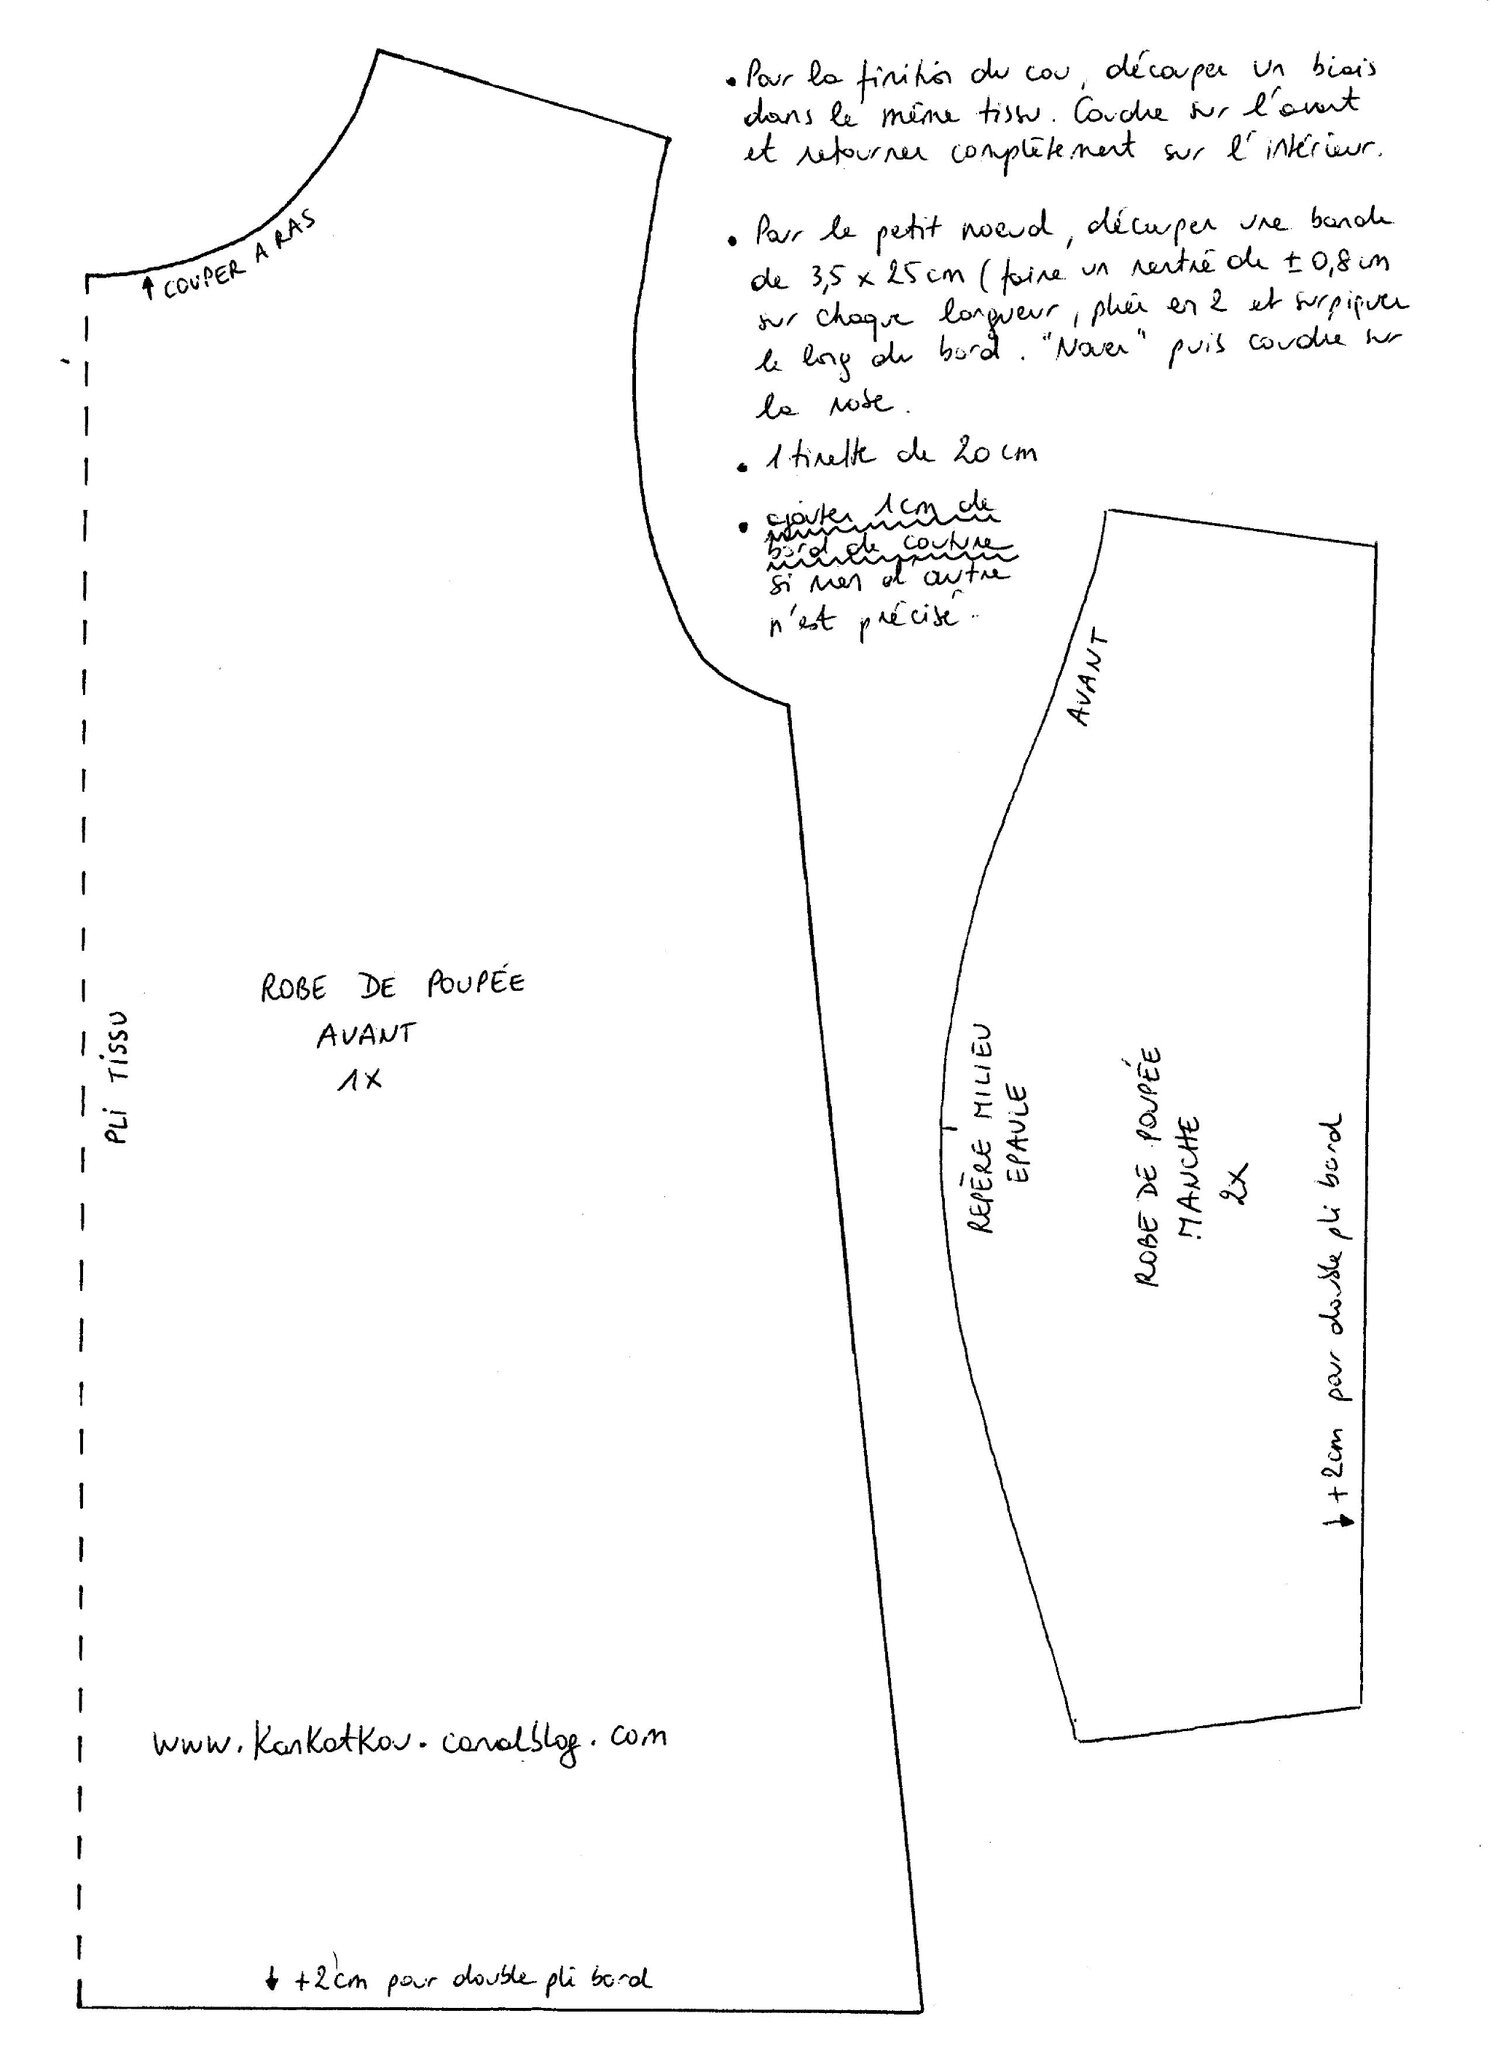 • Pour la finition du cou, découper un biais
dans le même tissu. Coudre sur l'avant
et retourner complètement sur l'intérieur.
• Pour le petit noeud, découper une bande
de 3,5 x 25 cm (faire un rentré de ± 0,8 cm
sur chaque longueur, plier en 2 et surpiquer
le long du bord. "Nouer" puis coudre sur
la robe.
• 1 tirette de 20 cm
• ajouter 1 cm de
bord de couture
si rien d'autre
n'est précisé.
↑ COUPER A RAS
AVANT
ROBE DE POUPÉE
AVANT
1X
PLI TISSU
REPÈRE MILIEU
EPAULE
ROBE DE POUPÉE
MANCHE
2X
↓ +2cm pour double pli bord
www.KarKatKou.canalblog.com
↓ +2cm pour double pli bord